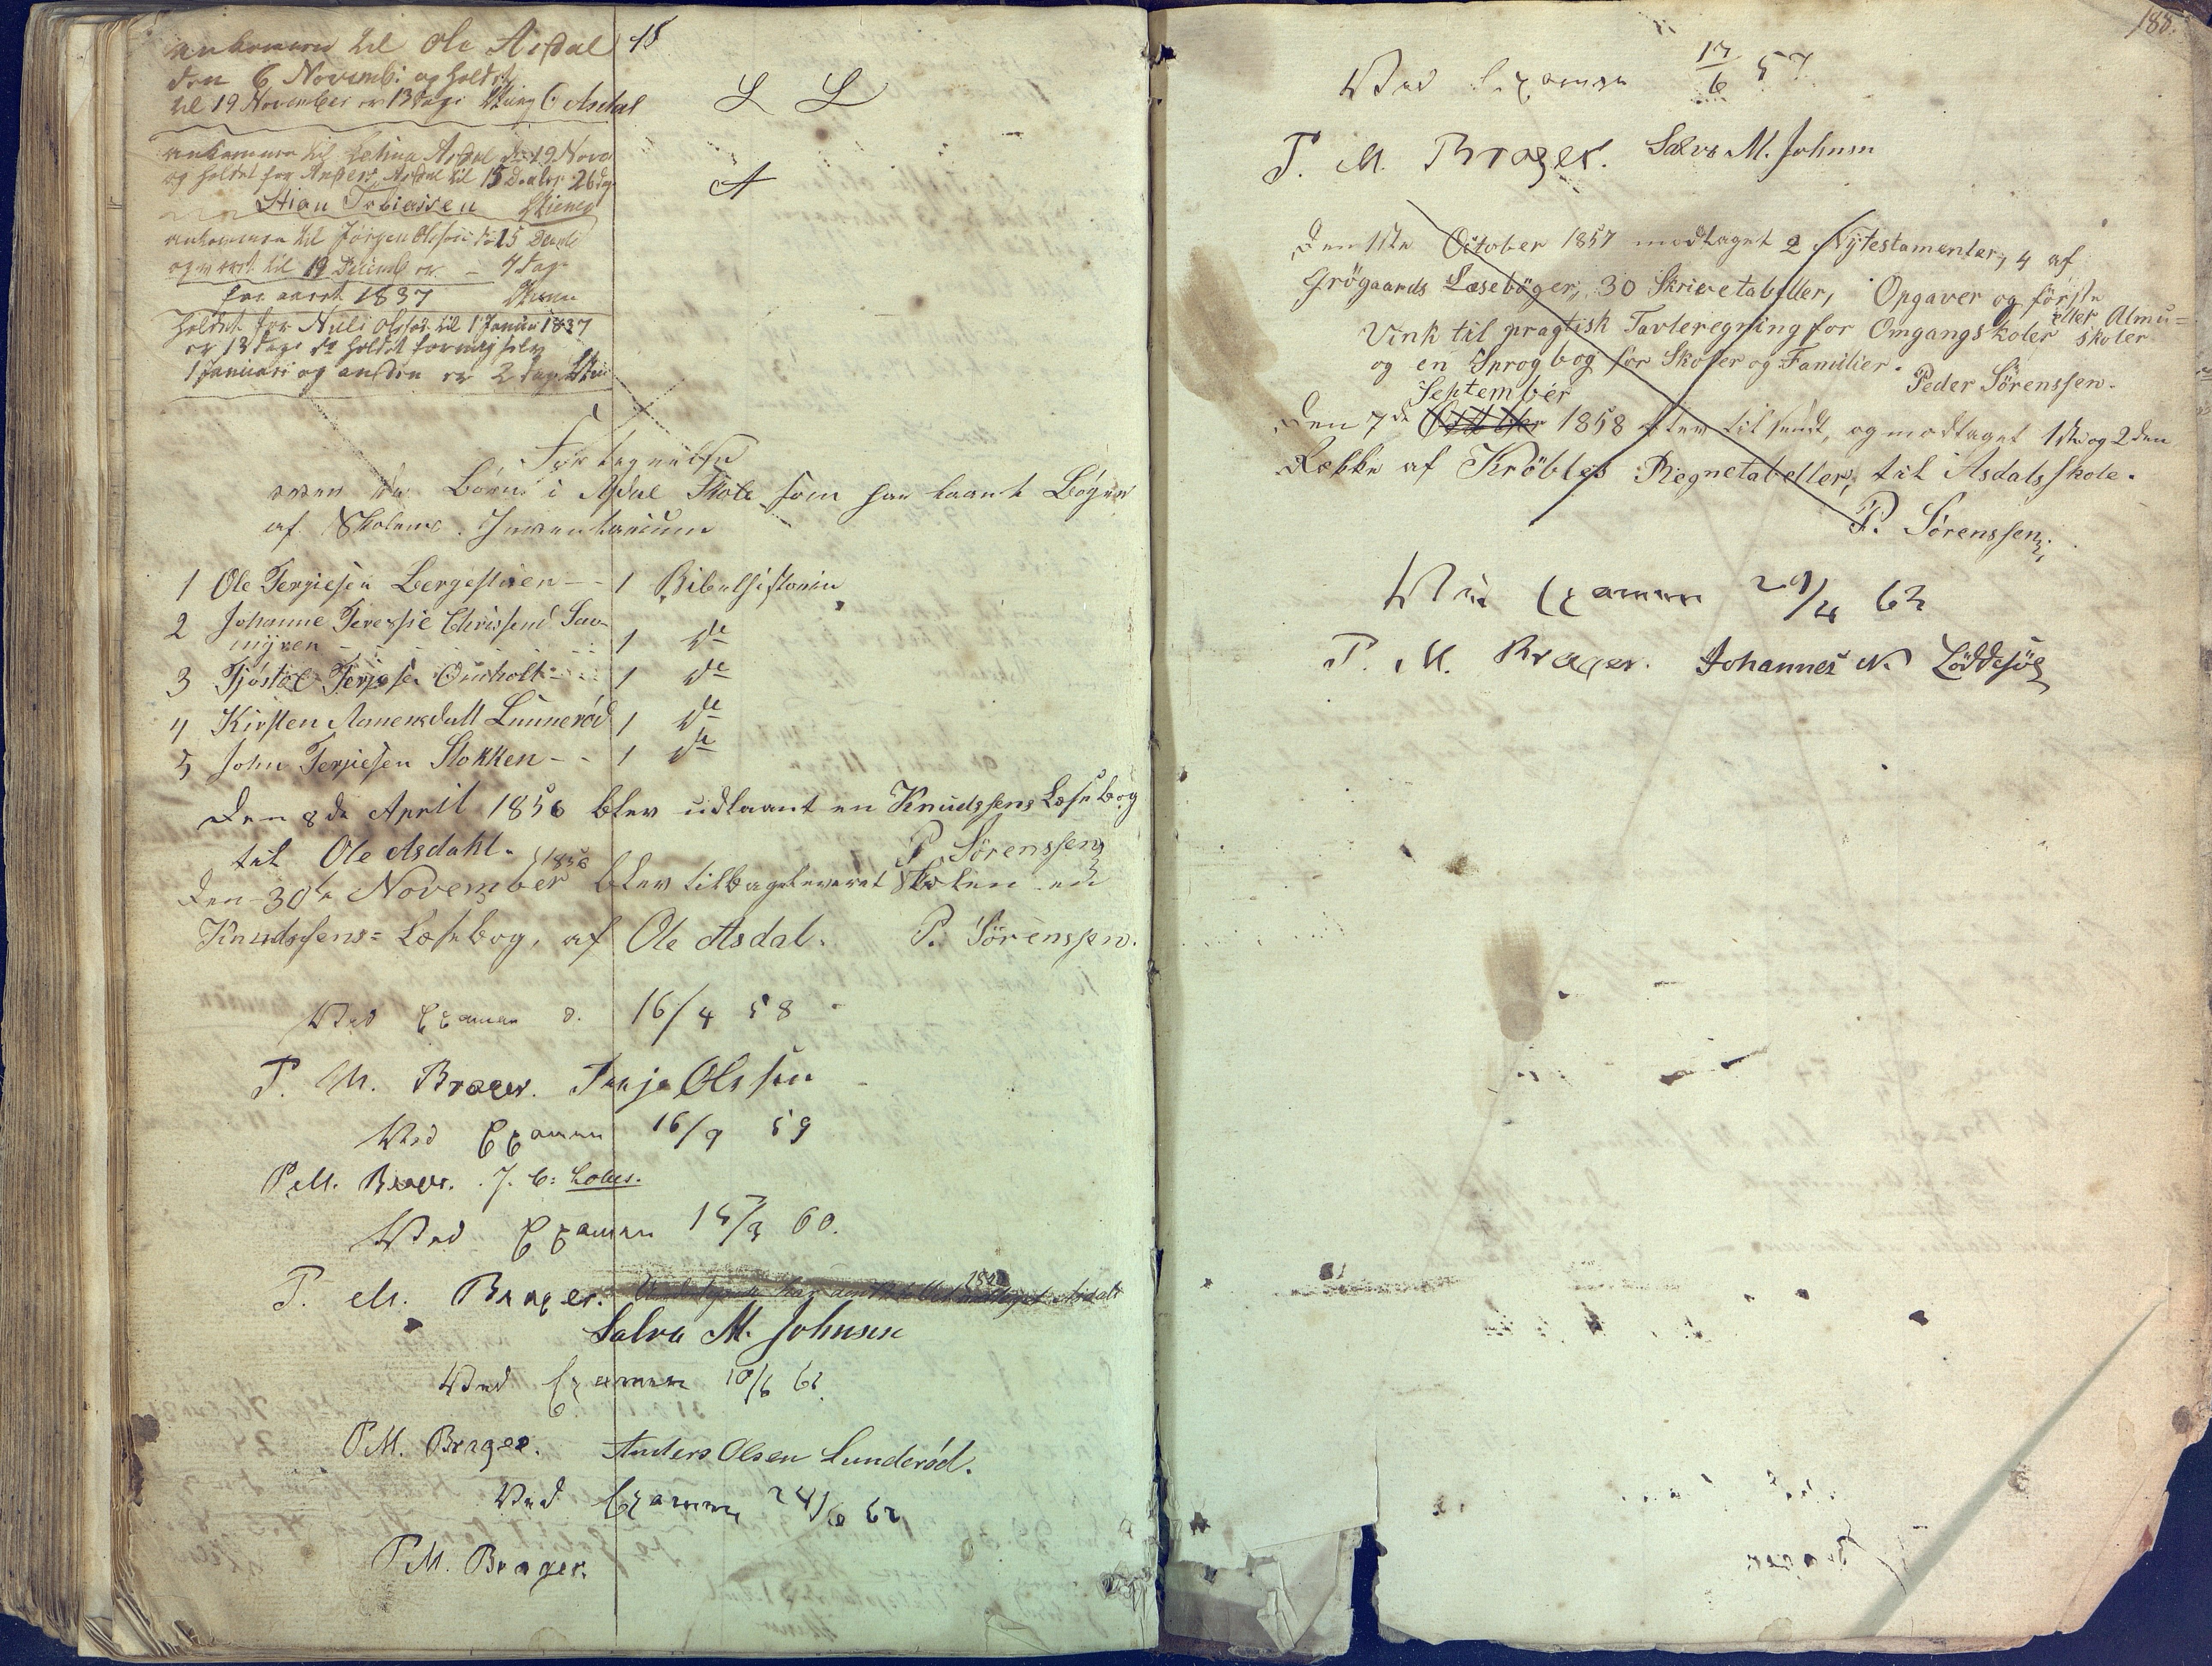 ankommen til Ole Asdal 15
den 6 Novemb: og holdt
til 19 November er 13 dage
ankommen til Asdal 19 Novb
og holdt for Anders Asdal til 15 26 dg
Stian Tobiassen
ankommen til Jørgen Olsson d 15
og været til 19 Decemb er 4 dag
for aaret 1837
holdt for Nils Olsson til 1 Januari 1837
er 13 dage holdt for mig selv
1 Januari og anden er 2 dag
L L
A
Fortegnelse
over de Børn i Asdal Skole som har laant Bøger
af Skolens Inventarium
1 Ole Terjiesen Bergestuen - - 1 Bibelhistorie
2 Johanne Teressie Chrissend Sau-
myren 1 de
3 Tjöstøl Terjesen Ousholt 1 de
4 Kirsten Aamensdatt Lunnerød 1 de
5 John Terjiesen Stokken - - 1 de
Den 8de April 1856 blev udlaant en Knudssens Læsebog
til Ole Asdahl. P. Sörenssen
Den 30te November 1856 blev tilbageleveret Skolen en
Knudssens= Læsebog, af Ole Asdal. P. Sörenssen.
Ved Examen d. 16/4 58
P. M. Brager. Terje Olssen
Ved Examen 16/9 59
P M. Brager. J. C:
Ved Examen 15/3 60.
P. M. Brager. Undertegnede har
Salve M. Johnsen
Ved Examen 10/6 61.
P M. Brager. Anders Olsen Lunderöd.
Ved Examen 24/6 62
P M. Brager.
188.
Ved Examen 17/6 57
P. M. Brager. Salve M. Johnsen
Den 1ste October 1857 modtaget 2 Nÿtestamenter, 4 af
Grögaards Læsebøger, 30 Skrivetabeller, Opgaver og förste
Vink til pragtisk Tavleregning for Omgangskoler eller Almu=
skoler
og en Sprogbog for Skoler og Familier. Peder Sörenssen.
September
Den 7de October 1858 blev tilsendt, og modtaget 1ste og 2den
Række af Kröbles Regnetabeller, til Asdals skole.
P. Sörenssen.
Ved Examen 29/4 63
P. M. Brager. Johannes N Löddesöl
Brager